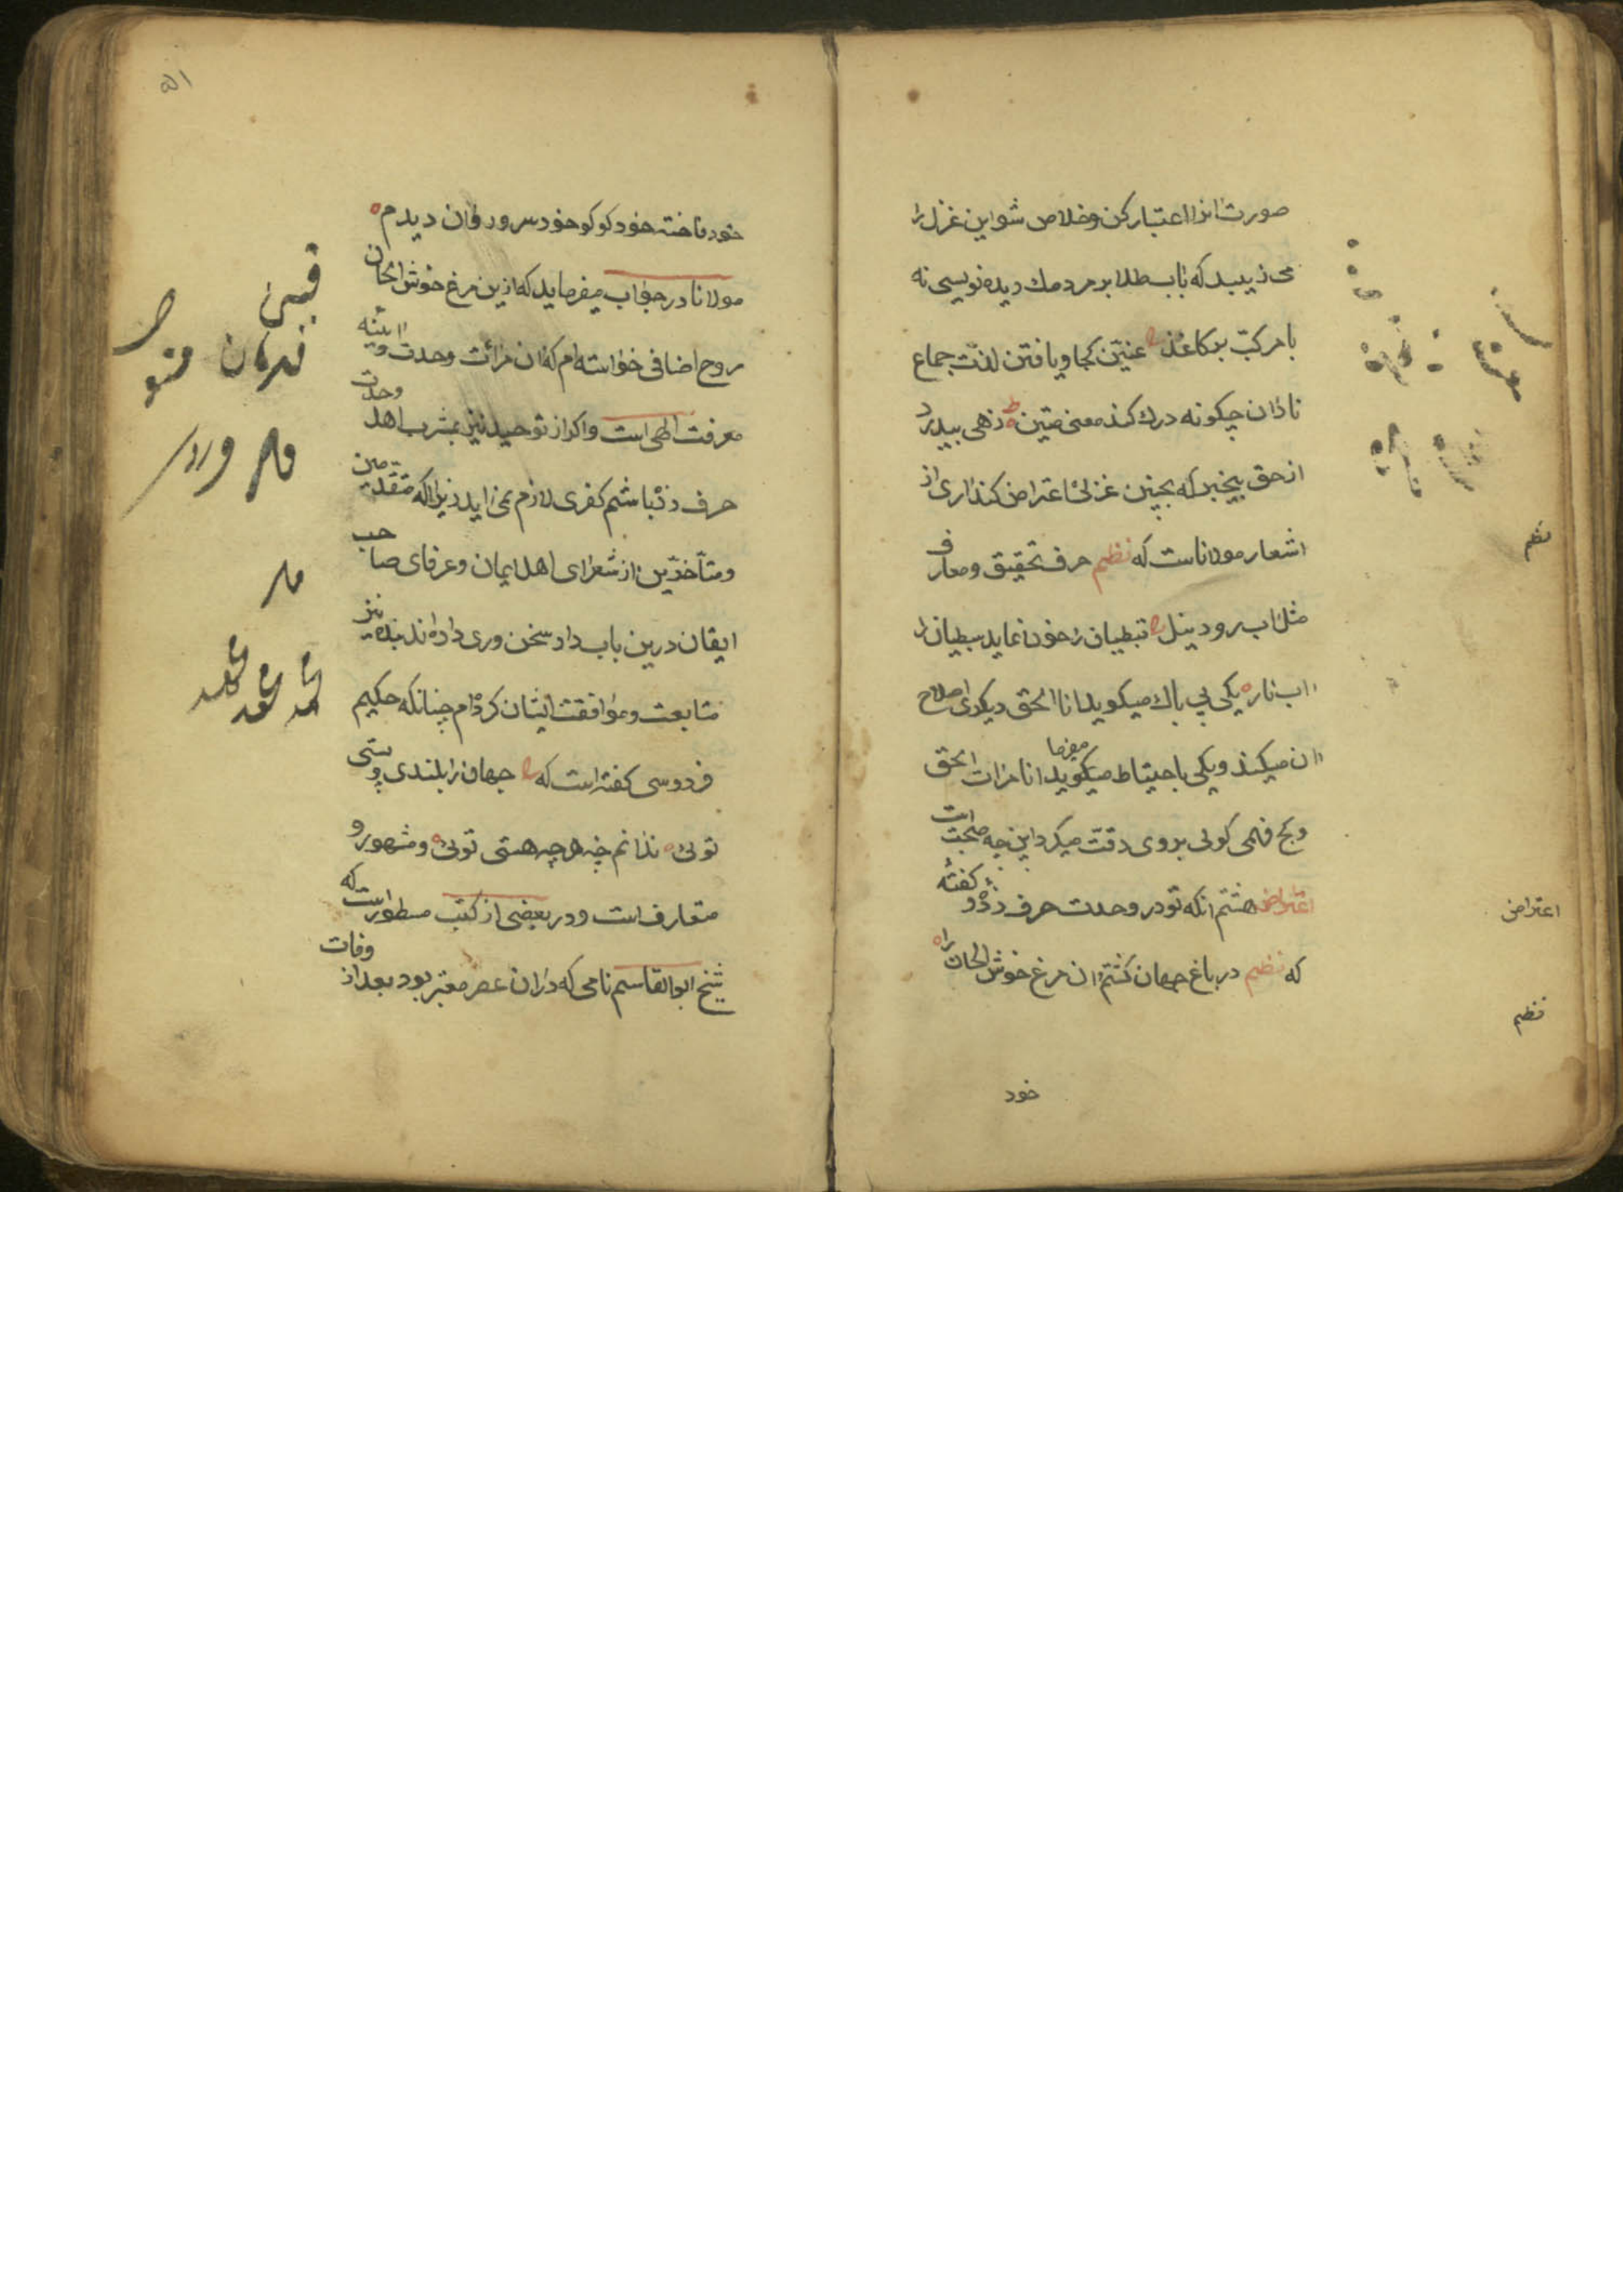 صورت انرا اعتبار کن و خلاص شو این غزل را
می زیبد که باب طلا بر مردمك دیده نویسی نه
با مرکب بر کاغذ عنین کجا و یافتن لذت جماع
نادان چکونه درك کند معنی متین زهی بیدرد
از حق بیخبر که بچنین غزلی اعتراض کند اری از
اشعار مولاناست که نظم حرف تحقیق و معارف
مثل اب رود نیل قبطیان را خون نماید سبطیان را
اب نار یکی بی باك میکوید انا الحق دیکری اصلاح
ان میکند و یکی با حیتاط میکوید انا مرات الحق
و کج فهمی کولی بر وی دقت میکرد این چه صحبت است
اعتراض هشتم انکه تو در وحدت حرف زده و کفته
که نظم در باغ جهان کشتم ان مرغ خوش الحان را
خود
نظم
اعتراض
نظم
۵۱
خود فاخته خود کوکو خود سرو روان دیدم
مولانا در جواب میفرماید که ازین مرغ خوش الحان
روح اضافی خواسته ام که ان مرات وحدت و ایینه
معرفت الهی است و اکر از توحید نیز بمشرب اهل وحدت
حرف زده باشم کفری لازم نمی اید زیرا که متقدمین
و متأخرین از شعرای اهل ایمان و عرفای صاحب
ایقان درین باب داد سخن وری داده اند بنده نیز
متابعت و موافقت ایشان کرده ام چنانکه حکیم
فردوسی کفته است که جهان را بلندی و پستی
تویی ندانم چه هر چه هستی تویی و مشهور و
متعارف است و در بعضی از کتب مسطور است که
شیخ ابوالقاسم نامی که در ان عصر معتبر بود بعد از وفات